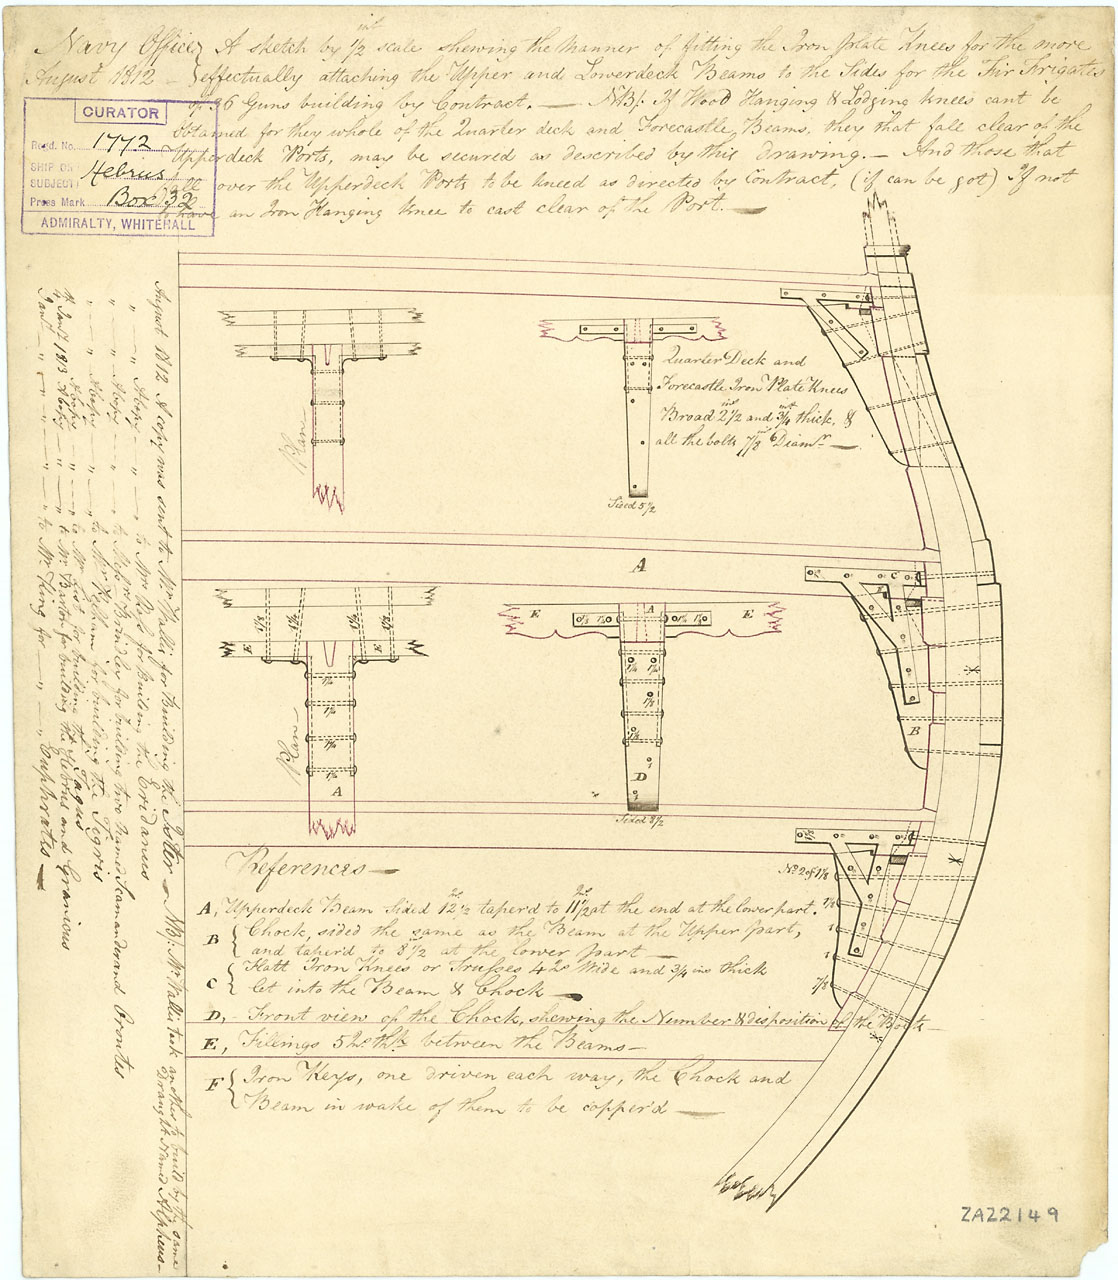 Navy Office
August 1812
A sketch by 1/2 inch scale shewing the Manner of fitting the Iron plate Knees for the more
effectually attaching the Upper and Lowerdeck Beams to the Sides for the Fir Frigates
of 36 Guns building by Contract. — NB/. If Wood Hanging & Lodging knees cant be
obtained for they whole of the Quarter deck and Forecastle Beams, they that fall clear of the
Upperdeck Ports, may be secured as described by this drawing. — And those that
fall over the Upperdeck Ports to be kneed as directed by Contract, (if can be got) If not
to have an Iron Hanging knee to cast clear of the Port. —
CURATOR
Regd. No. 1772
SHIP OR SUBJECT Hebrus
Press Mark Box 32
ADMIRALTY, WHITEHALL
Quarter Deck and
Forecastle Iron Plate Knees
Broad 2 1/2 ins and 3/4 ins thick, &
all the bolts 7/8 Diamr —
Sided 5 1/2
A
C
B
E
E
1 1/8
1 1/4
1 1/4
1 1/8
A
E
A
E
D
Sided 8 1/2
No 2 of 1 1/8
7/8
1
1
7/8
References —
A, Upperdeck Beam sided 12 1/2 ins taper'd to 11 1/2 ins at the end at the lower part.
B { Chock, sided the same as the Beam at the Upper part,
and taper'd to 8 1/2 at the lower part —
C { Flatt Iron Knees or Trusses 4 ins Wide and 3/4 ins thick
let into the Beam & Chock —
D, - Front view of the Chock, shewing the Number & disposition of the Bolts —
E, Filings 5 ins thk between the Beams —
F { Iron Keys, one driven each way, the Chock and
Beam in wake of them to be copper'd —
August 1812 A copy was sent to Mr Wallis for Building the Ister — NB/. Mr Wallis took another to build by the same
Draught Named Alpheus —
" " A copy — " — to Mr for Building the Eridanus
" — " — A copy — " — to Messrs Brindley for building two Named Scamander and Orontes
" — " — A copy — " — to Mr Pelham for building the Tigris
" — " — A copy — " — to Mr List for building the Tagus
4 Jany 1813 A copy — " — to Mr Barton for building the Hebrus and Granicus
Jany — " — " — " — to Mr King for — " — Euphrates —
ZAZ2149